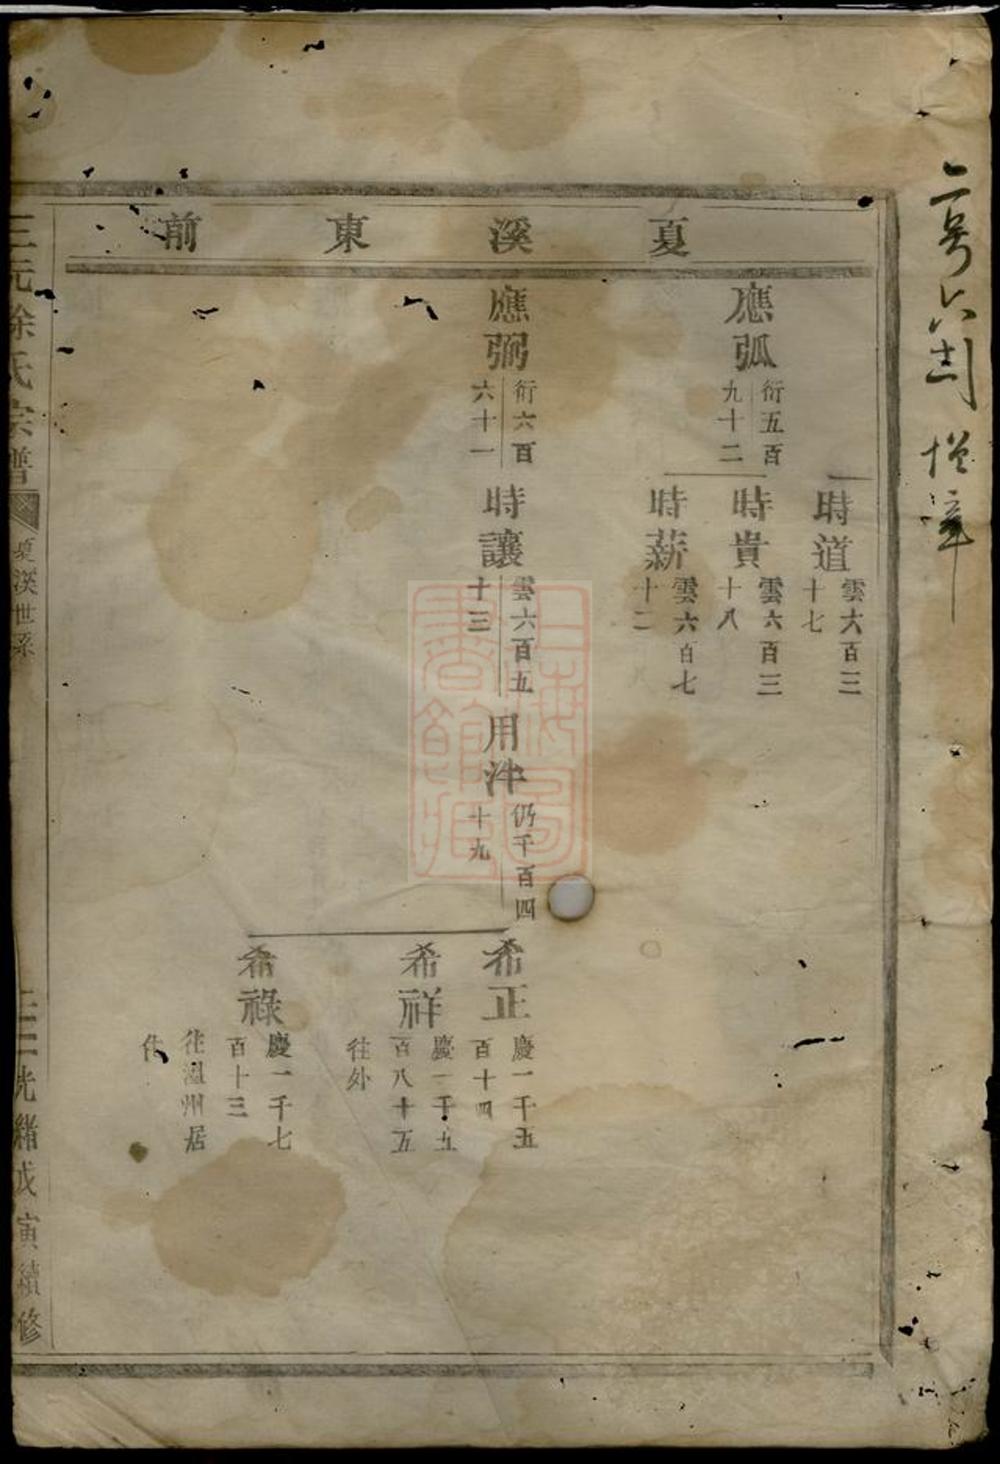 夏溪東前
應弧
衍五百
九十二
時道
雲六百三
十七
時貴
雲六百三
十八
時薪
雲六百七
十二
應弼
衍六百
六十一
時讓
雲六百五
十三
用沖
仍千百四
十九
希正
慶一千五
百十四
希祥
慶一千五
百八十五
往外
希祿
慶一千七
百十三
往溫州居
住
三元徐氏宗譜
夏溪世系
光緒戊寅續修
上海圖
書館藏